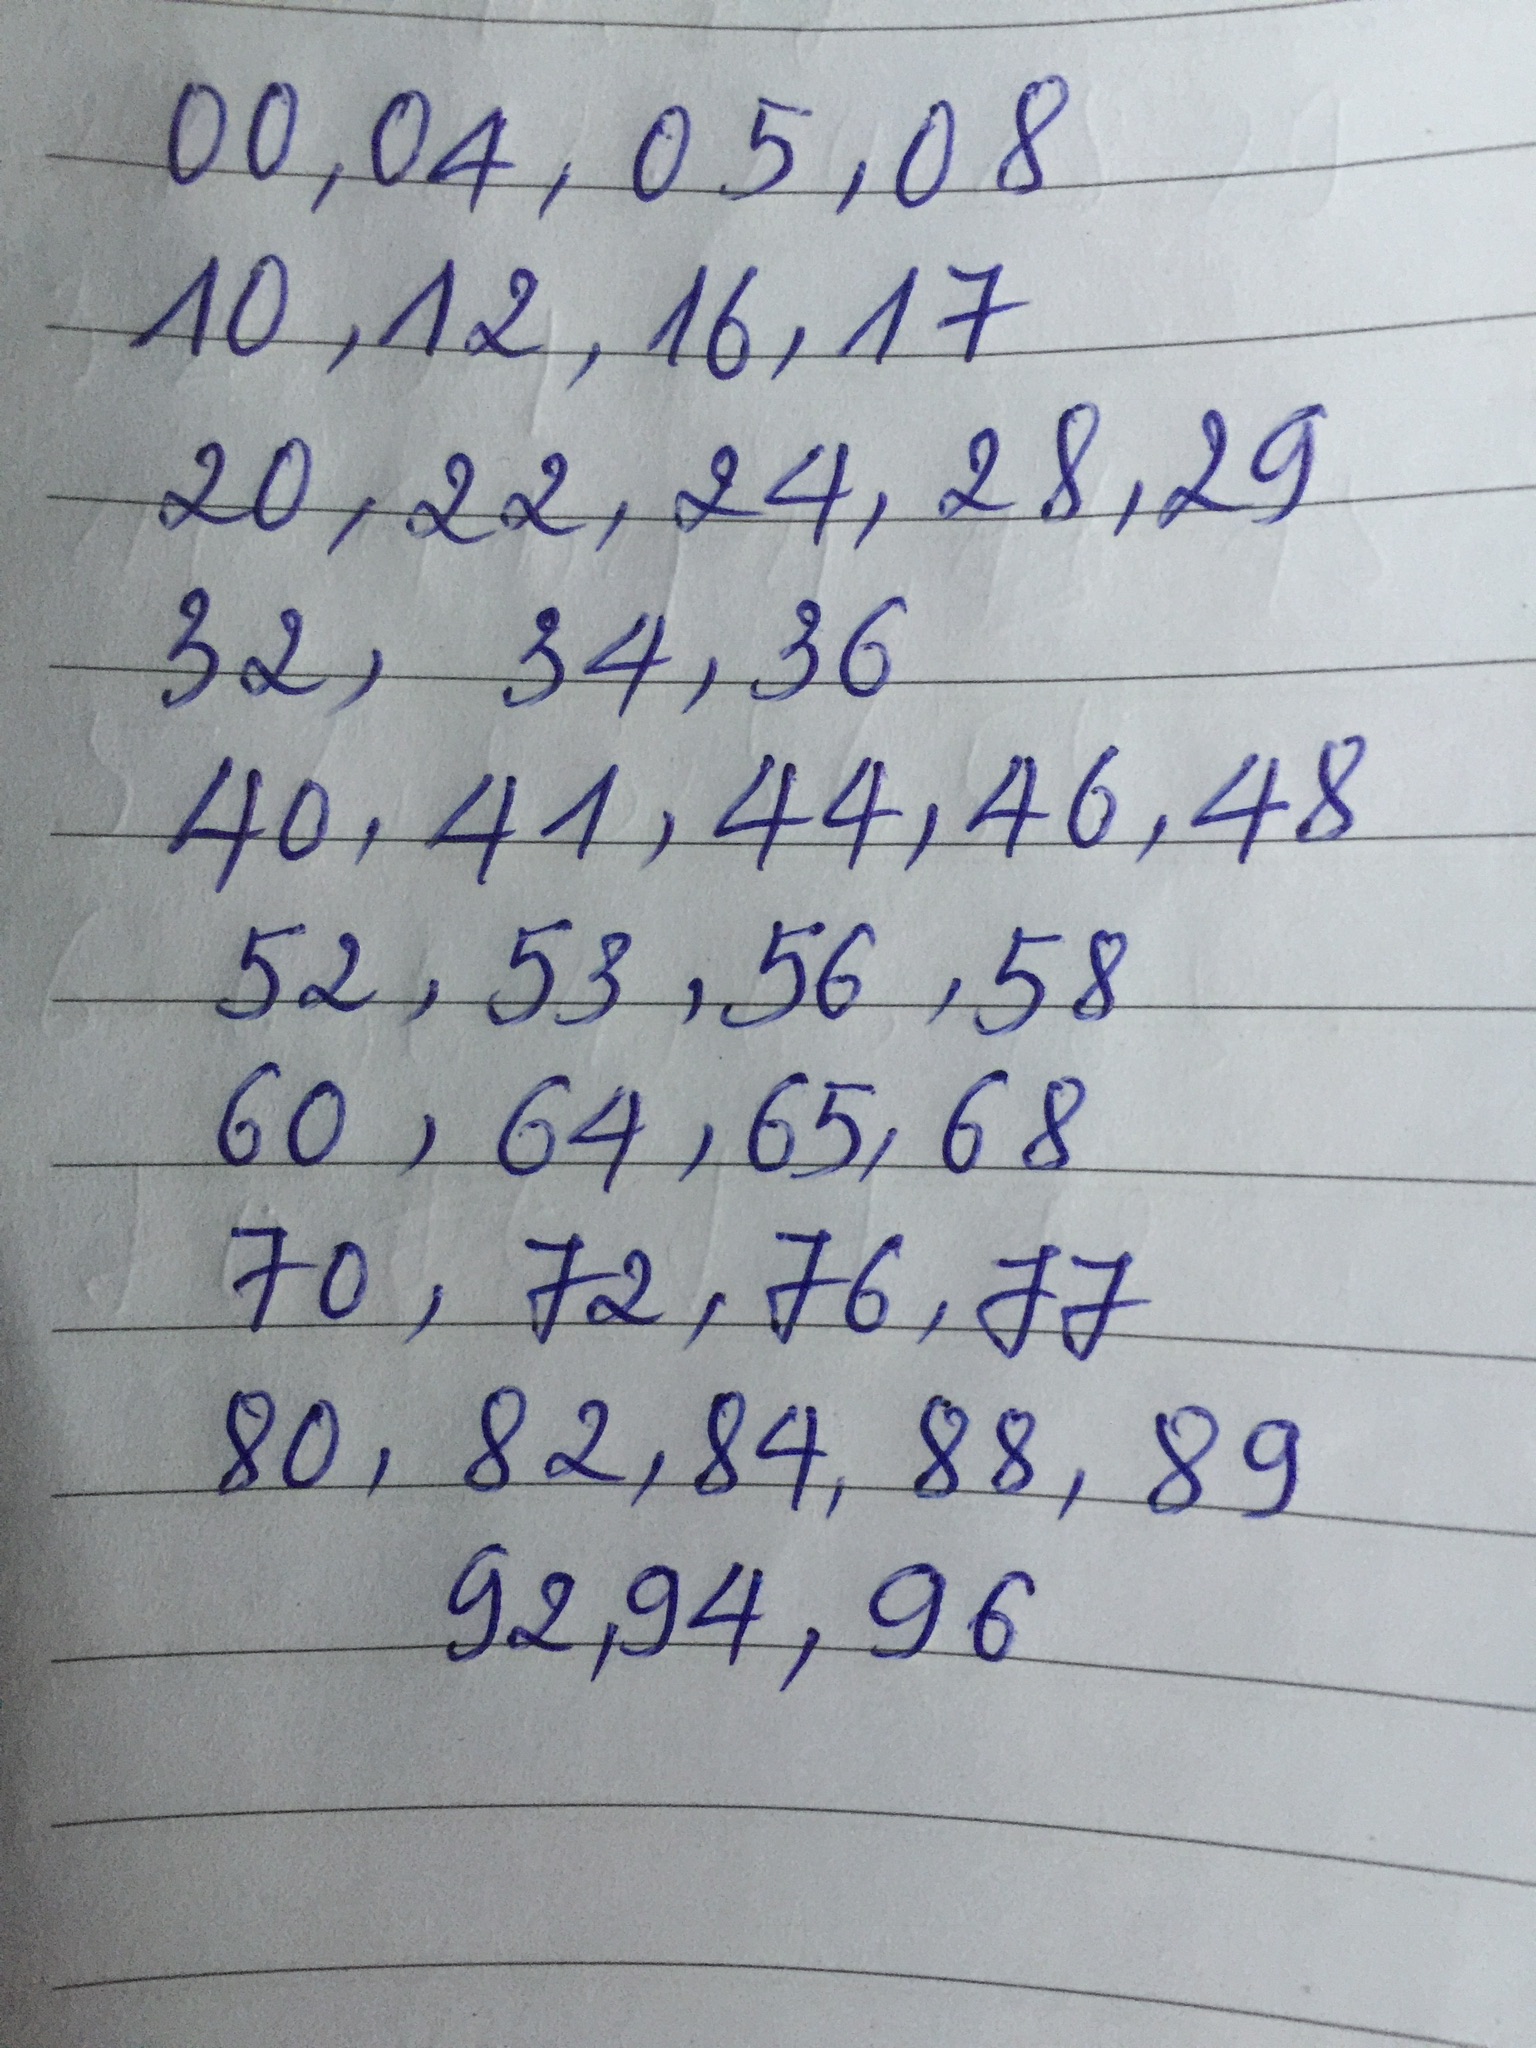 00, 04, 05, 08
10, 12, 16, 17
20, 22, 24, 28, 29
32, 34, 36
40, 41, 44, 46, 48
52, 53, 56, 58
60, 64, 65, 68
70, 72, 76, 77
80, 82, 84, 88, 89
92, 94, 96